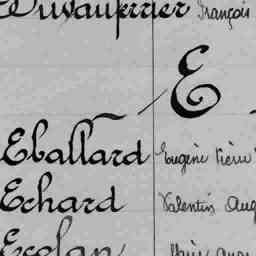 Duvauferrier François
E
Eballard Eugène Pierre
Echard Valentin Aug
Ecolan